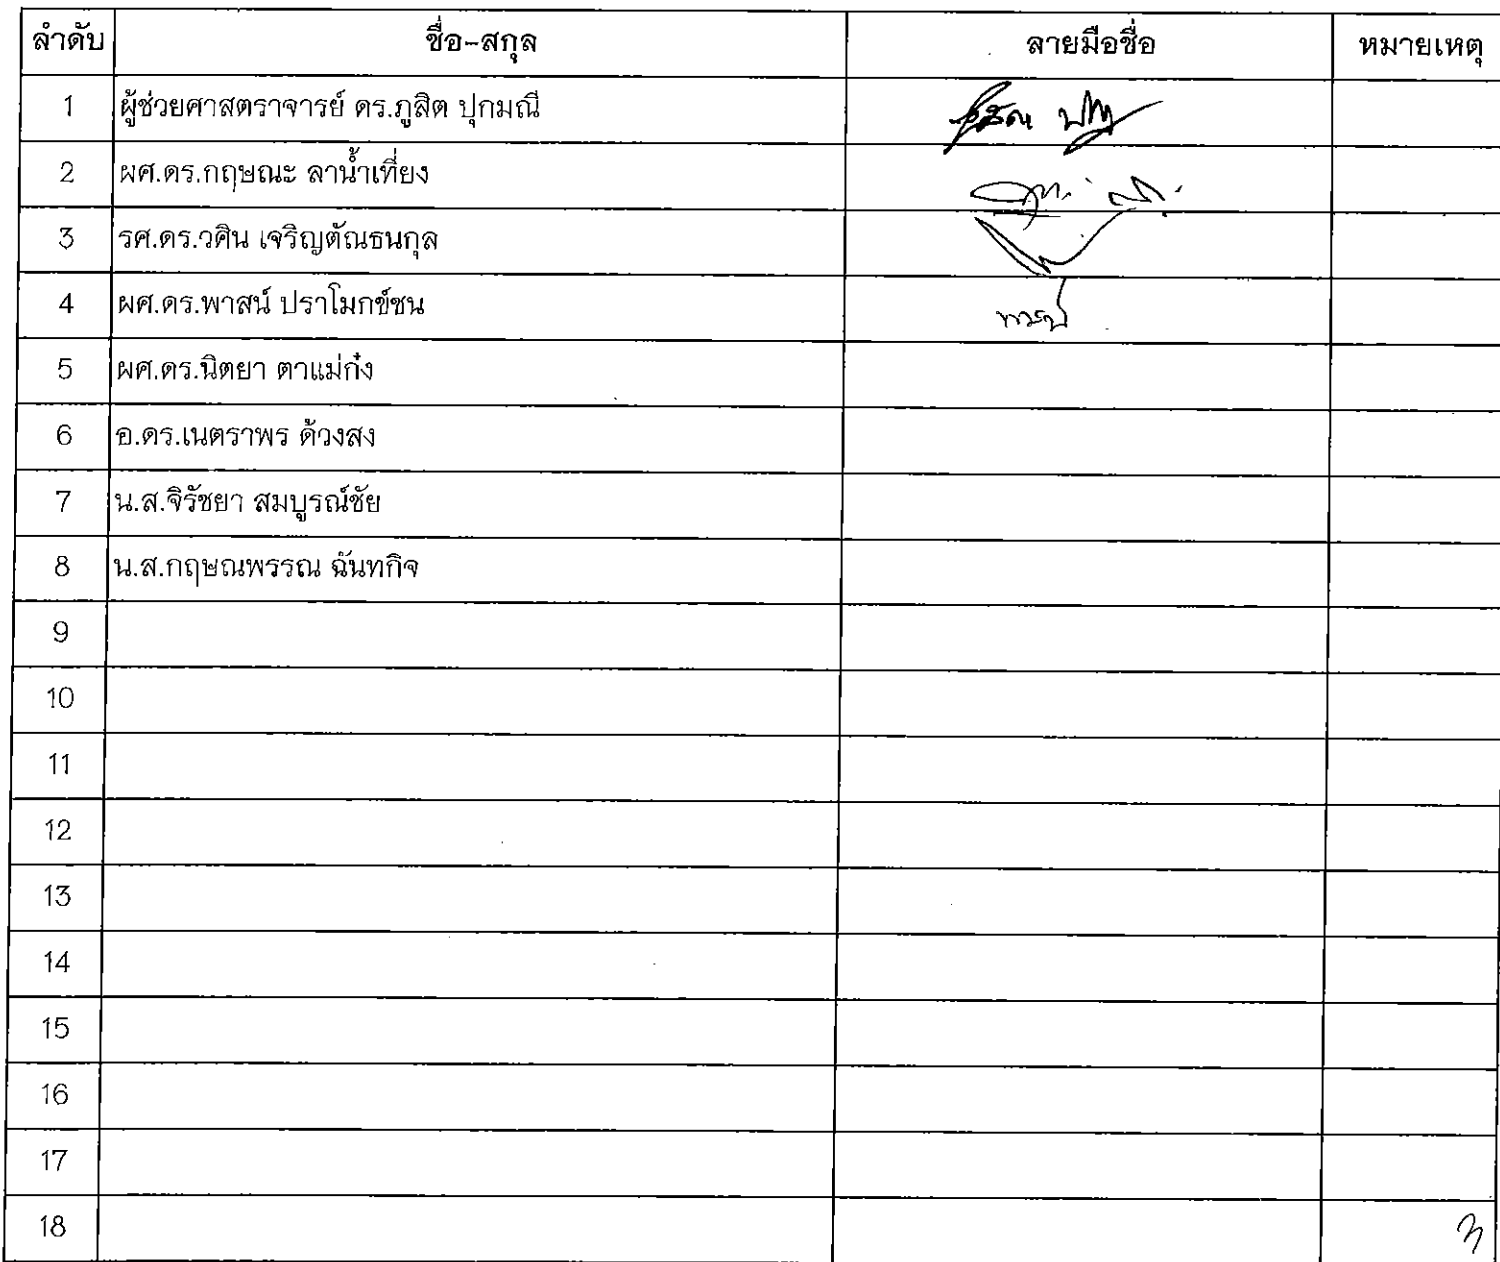 ลำดับ ชื่อ-สกุล ลายมือชื่อ หมายเหตุ
1 ผู้ช่วยศาสตราจารย์ ดร.ภูสิต ปุกมณี
2 ผศ.ดร.กฤษณะ ลาน้ำเที่ยง
3 รศ.ดร.วศิน เจริญตัณธนกุล
4 ผศ.ดร.พาสน์ ปราโมกข์ชน
5 ผศ.ดร.นิตยา ตาแม่ก๋ง
6 อ.ดร.เนตราพร ด้วงสง
7 น.ส.จิรัชยา สมบูรณ์ชัย
8 น.ส.กฤษณพรรณ ฉันทกิจ
9
10
11
12
13
14
15
16
17
18